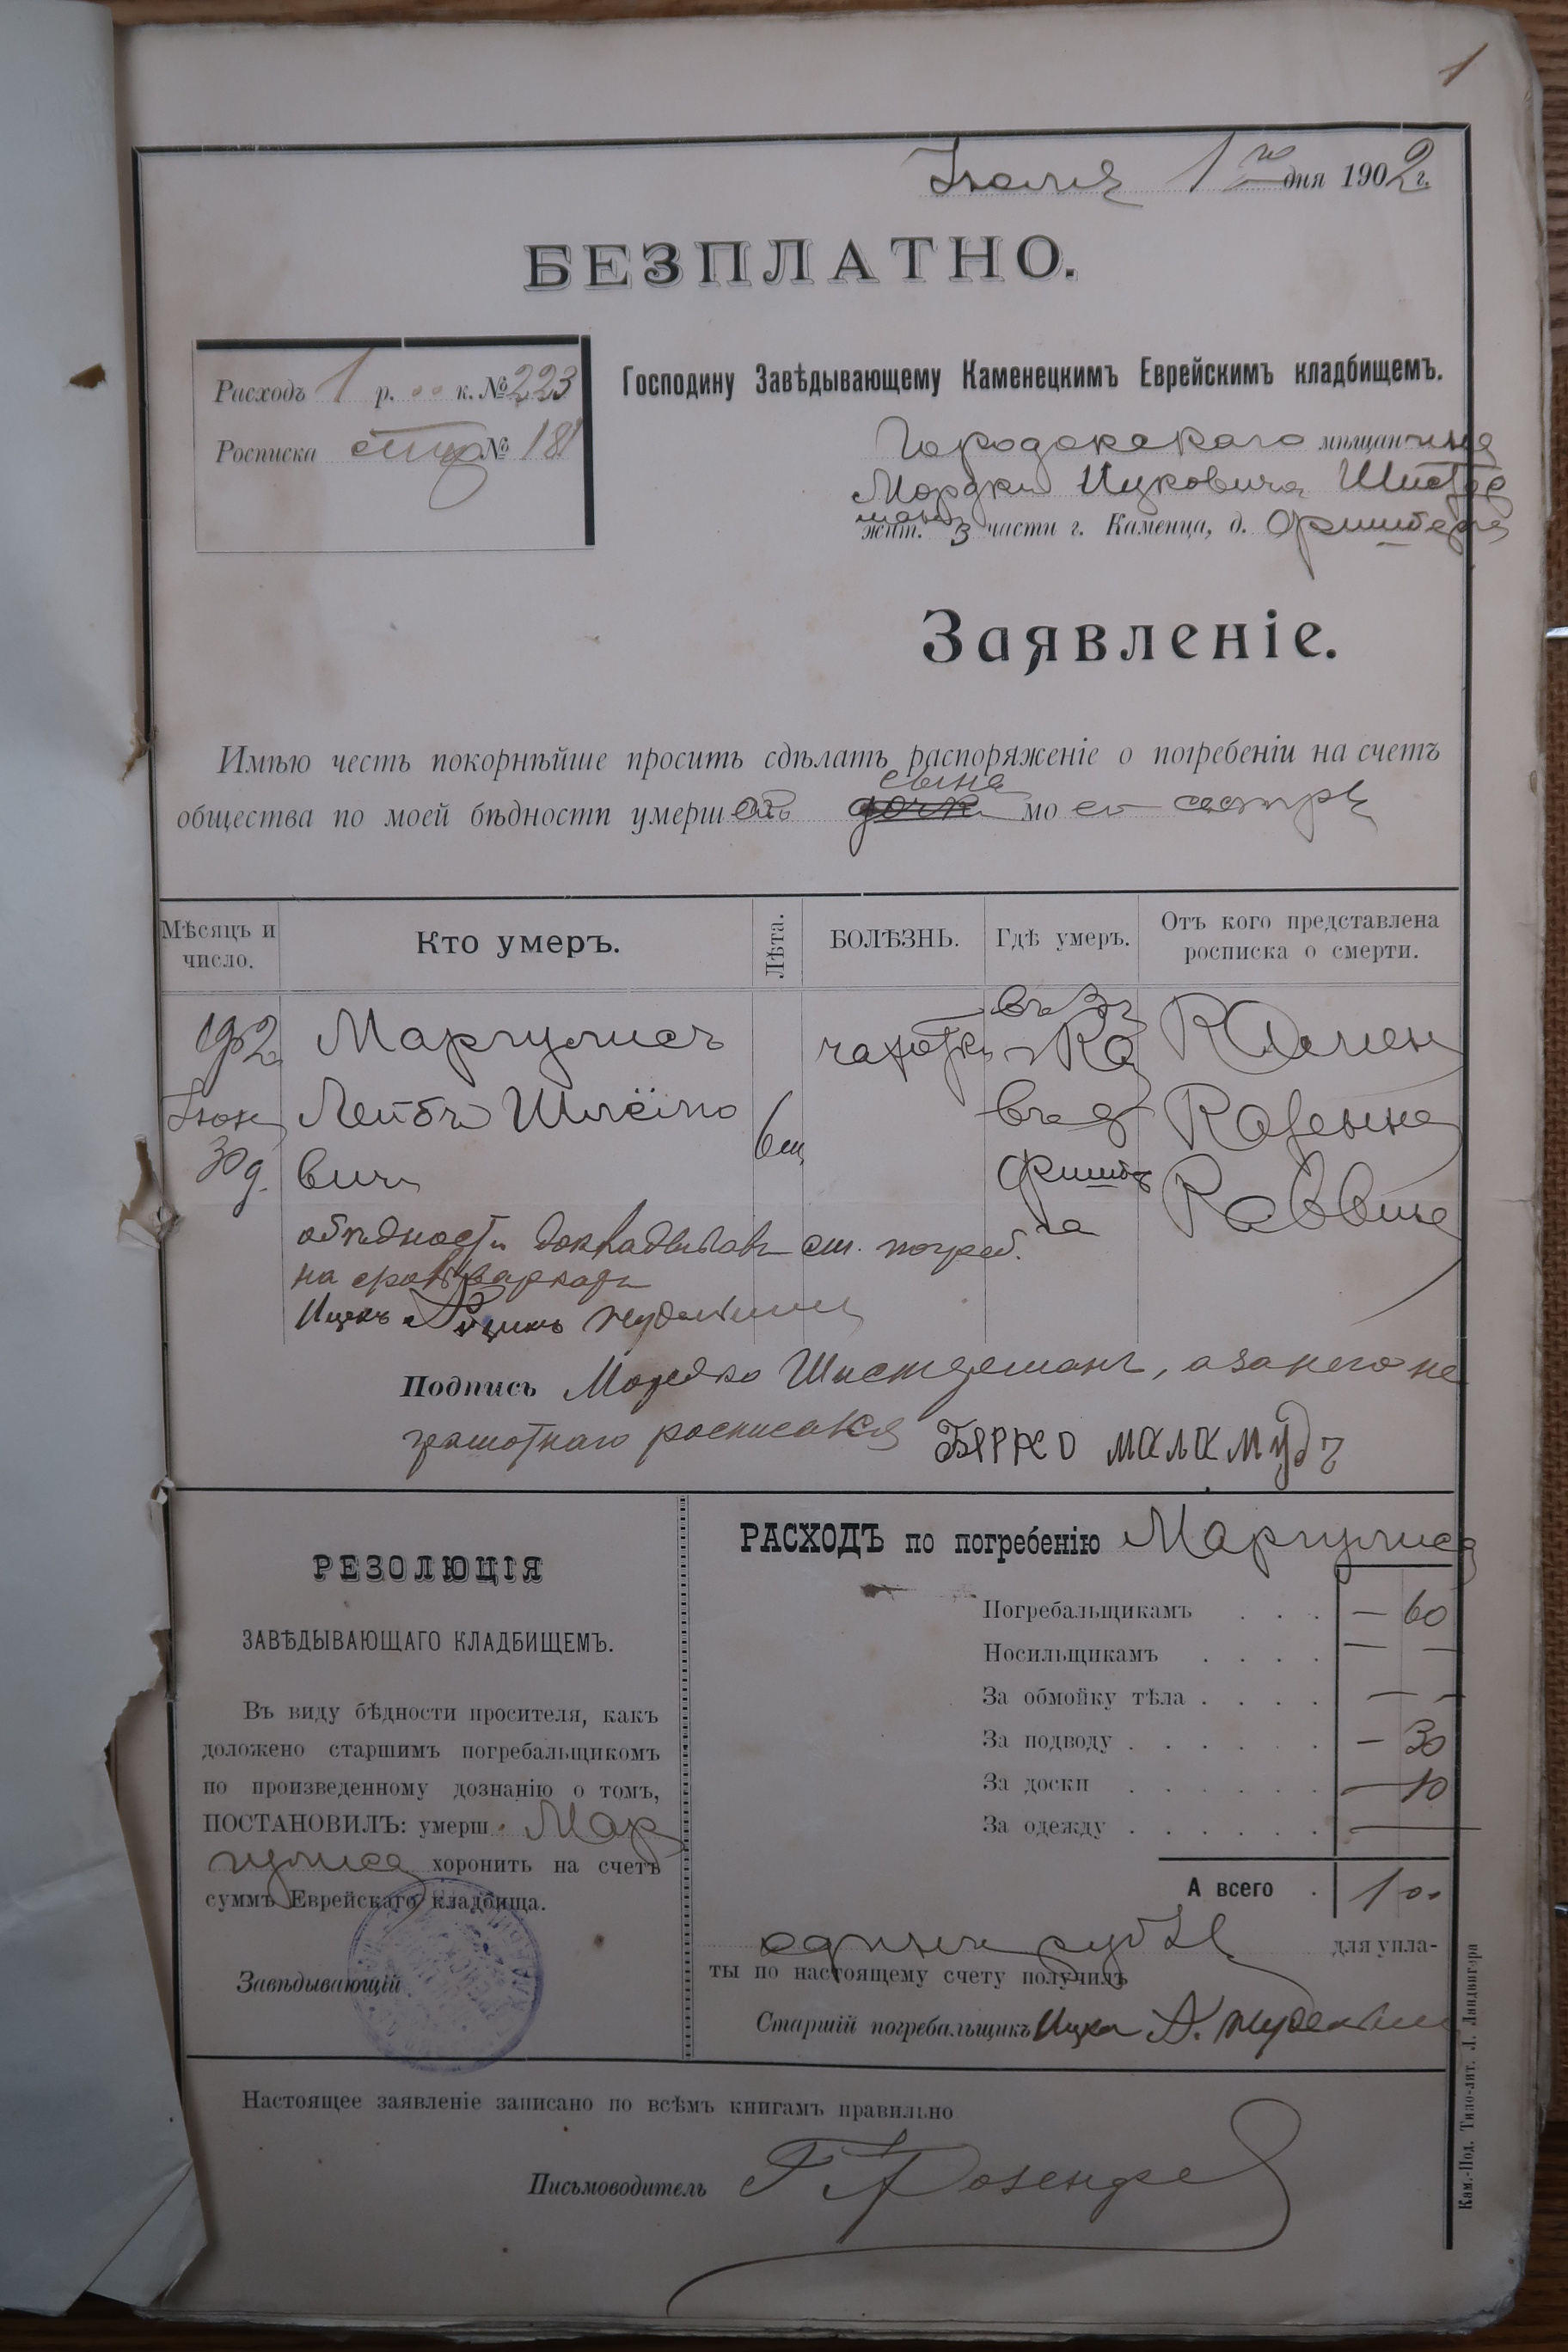 1
Іюля 1 го дня 1902 г.
БЕЗПЛАТНО.
Расходъ 1 р. .. к. № 223
Росписка № 181
Господину Завѣдывающему Каменецкимъ Еврейскимъ кладбищемъ.
Городокскаго мѣщанина
Мордки Ицковича
жит. 3 части г. Каменца, д.
Заявленіе.
Имѣю честь покорнѣйше просить сдѣлать распоряженіе о погребеніи на счетъ
сына
общества по моей бѣдности умерш дочки мо ей сестры
Мѣсяцъ и число.
Кто умеръ.
Лѣта.
БОЛѢЗНЬ.
Гдѣ умеръ.
Отъ кого представлена росписка о смерти.
1902 Маргулисъ чахотки въ 3 ч Камен
Іюн Лейбъ Шлёймо въ д Казенна
30 д. вичъ 6 Раввина
о бѣдности докладывалъ ст. погреб.
Подпись Мордко Шистерманъ, а за него не
грамотнаго росписался Бярко маламудъ
РЕЗОЛЮЦІЯ
ЗАВѢДЫВАЮЩАГО КЛАДБИЩЕМЪ.
Въ виду бѣдности просителя, какъ
доложено старшимъ погребальщикомъ
по произведенному дознанію о томъ,
ПОСТАНОВИЛЪ: умерш. Мар
гулиса хоронить на счетъ
суммъ Еврейскаго кладбища.
Завѣдывающій
РАСХОДЪ по погребенію Маргулиса
Погребальщикамъ . . . — 60
Носильщикамъ . . . . — —
За обмойку тѣла . . . . — —
За подводу . . . . . . — 30
За доски . . . . . . — 10
За одежду . . . . . . —
А всего . 1 00
одинъ рубль для упла-
ты по настоящему счету получилъ
Старшій погребальщикъ Ицко А.
Настоящее заявленіе записано по всѣмъ книгамъ правильно
Письмоводитель Г. Розенфе
Кам.-Под. Типо-лит. Л. Ландвигера